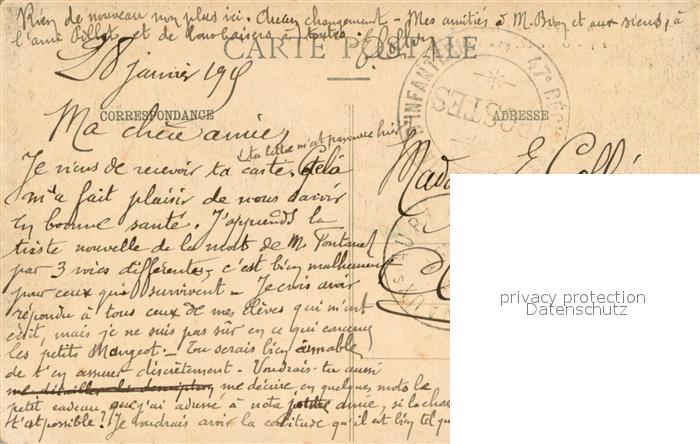 Rien de nouveau non plus ici. Aucun changement - Mes amitiés à M. et aux siens, à
l'ami et de bons baisers à toutes.
CARTE POSTALE
28 janvier 1915
CORRESPONDANCE
ADRESSE
47e RÉGI
D'INFANT
POSTES
Ma chère amie,
(ta lettre m'est parvenue hier)
Je viens de recevoir ta carte. Cela
m'a fait plaisir de vous savoir
en bonne santé. J'apprends la
triste nouvelle de la mort de M. Fontanel
par 3 voies différentes, c'est bien malheureux
pour ceux qui survivent - Je crois avoir
répondu à tous ceux de mes élèves qui m'ont
écrit, mais je ne suis pas sûr en ce qui concerne
les petits Mangeot. - Tu serais bien aimable
de t'en assurer discrètement - Voudrais-tu aussi
me décrire, en quelques mots le
petit cadeau, que j'ai à notre amie, si la chose
t'est possible? Je voudrais avoir la certitude qu'il est bien tel qu
Madame E.
privacy protection
Datenschutz